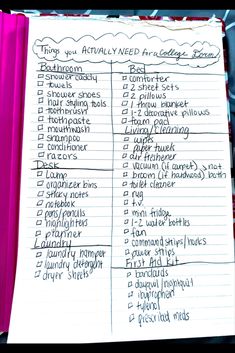 Things you ACTUALLY NEED for a College Dorm
Bathroom
shower caddy
towels
shower shoes
hair styling tools
toothbrush
toothpaste
mouthwash
shampoo
conditioner
razors
Desk
Lamp
organizer bins
sticky notes
notebook
pens/pencils
highlighters
planner
Laundry
laundry hamper
laundry detergent
dryer sheets
Bed
comforter
2 sheet sets
2 pillows
1 throw blanket
1-2 decorative pillows
foam pad
Living/Cleaning
wipes
paper towels
air freshener
vacuum (if carpet) not
broom (if hardwood) both
toilet cleaner
rug
t.v.
mini fridge
1-2 water bottles
fan
command strips/hooks
power strips
First Aid Kit
bandaids
dayquil/nightquil
ibuprophen
tylenol
prescribed meds